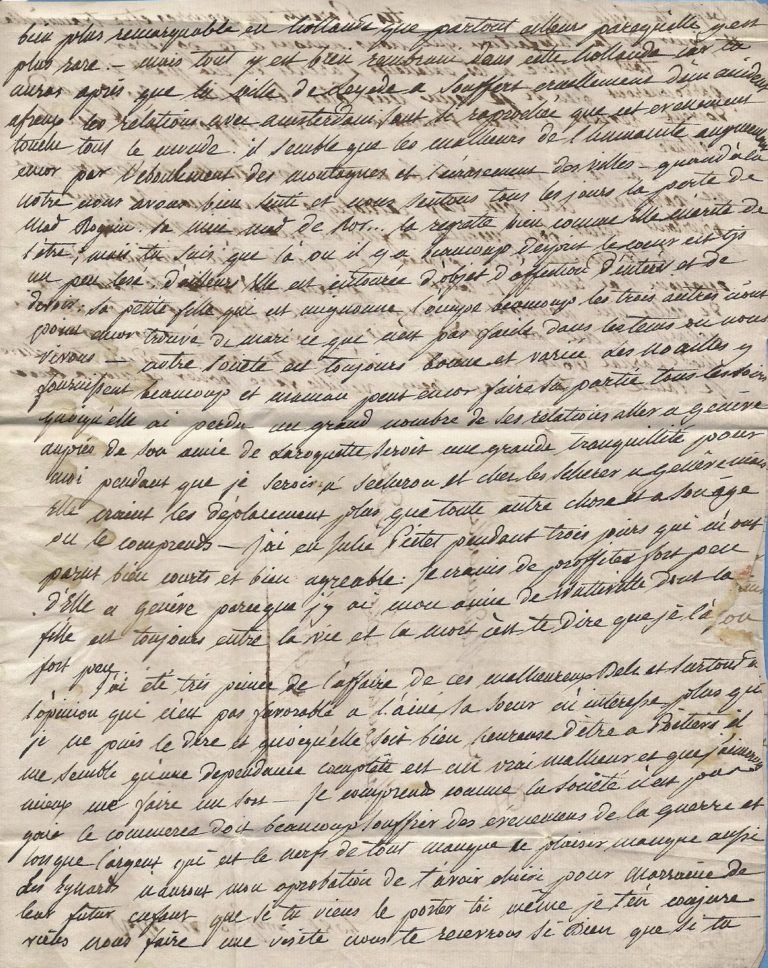 bien plus remarquable en hollande que partout ailleurs parcequ'elle y est
plus rare – mais tout y est bien rembruni dans cette Hollande car tu
auras apris que la ville de Leyede a souffert cruellement d'un accident
afreux les relations avec amsterdam sont si raproché que cet evenement
touche tous le monde. il semble que les malheurs de l'humanité augmente
encor par l'eboulement des montagnes et l'écrasement des villes – quand à la
notre nous avons bien senti et nous sentons tous les jours la perte de
Mad Roguin sa mere mad de la regrete bien comme Elle mérite de
l'être, mais tu sais que là ou il y a beaucoup d'esprit le coeur est tjs
un peu lesé d'ailleurs Elle est entourée d'objet d'affection d'interet et de
devoir. sa petite fille qui est mignonne l'occupe beaucoup les trois autres n'ont
point encor trouvé de mari ce que n'est pas facile dans les tems ou nous
vivons – notre société est toujours bonne et variée Les Noailles y
fournissent beaucoup et maman peut encor faire sa partie tous les soirs
quoiqu'elle ai perdu un grand nombre de ses relations aller a genève
auprès de son amie de Laroquette seroit une grande tranquillité pour
moi pendant que je serois à secheron et chez les Scherer a genève mais
Elle craint les déplacement plus que toute autre chose et a son age
on le comprends – j'ai eu Julie Pictet pendant trois jours qui m'ont
parut bien courts et bien agreable. Je crains de profiter fort peu
d'Elle a genève parceque j'y ai mon amie de Watteville dont la
fille est toujours entre la vie et la mort c'est te dire que je la
fort peu.
J'ai été très peinée de l'affaire de ces malheureux et surtout de
l'opinion qui n'est pas favorable a l'ainé la soeur m'interesse plus que
je ne puis le dire et quoiqu'elle soit bien heureuse d'être a il
me semble qu'une dependance complette est un vrai malheur et que j'aimerois
mieux me faire un sort – je comprends comme la société n'est pas
gaie le commerce doit beaucoup souffrir des événemens de la guerre et
lorsque l'argent qui est le nerfs de tout manque le plaisir manque aussi
Les Eynards n'auront mon aprobation de t'avoir choisi pour marraine de
leur futur enfant que si tu viens le porter toi même je t'en conjure
viens nous faire une visite nous te recevrons si bien que si tu